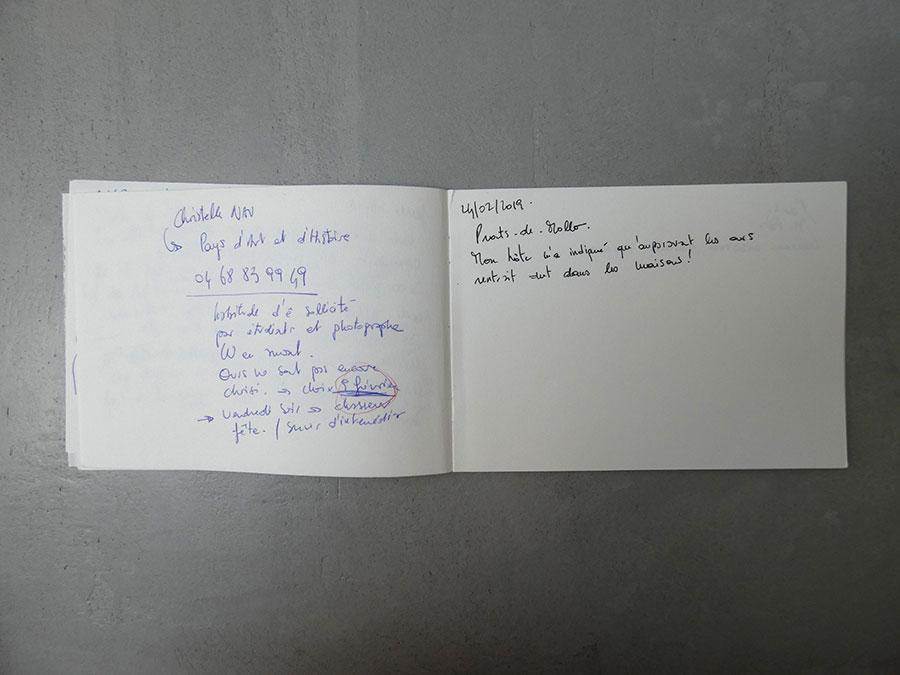 Christelle NAV
↳ Pays d'Art et d'Histoire
04 68 83 99 49
habitude d'ê sollicité
par étudiants et photographe
W en mont.
Ours ne sont pas encore
choisi. → choix 9 février
→ vendredi soir → chasseur
fête. / Servir d'intermédiair
24/02/2019.
Prats-de-Mollo.
Mon hôte m'a indiqué qu'auparavant les ours
rentrait dans les maisons!